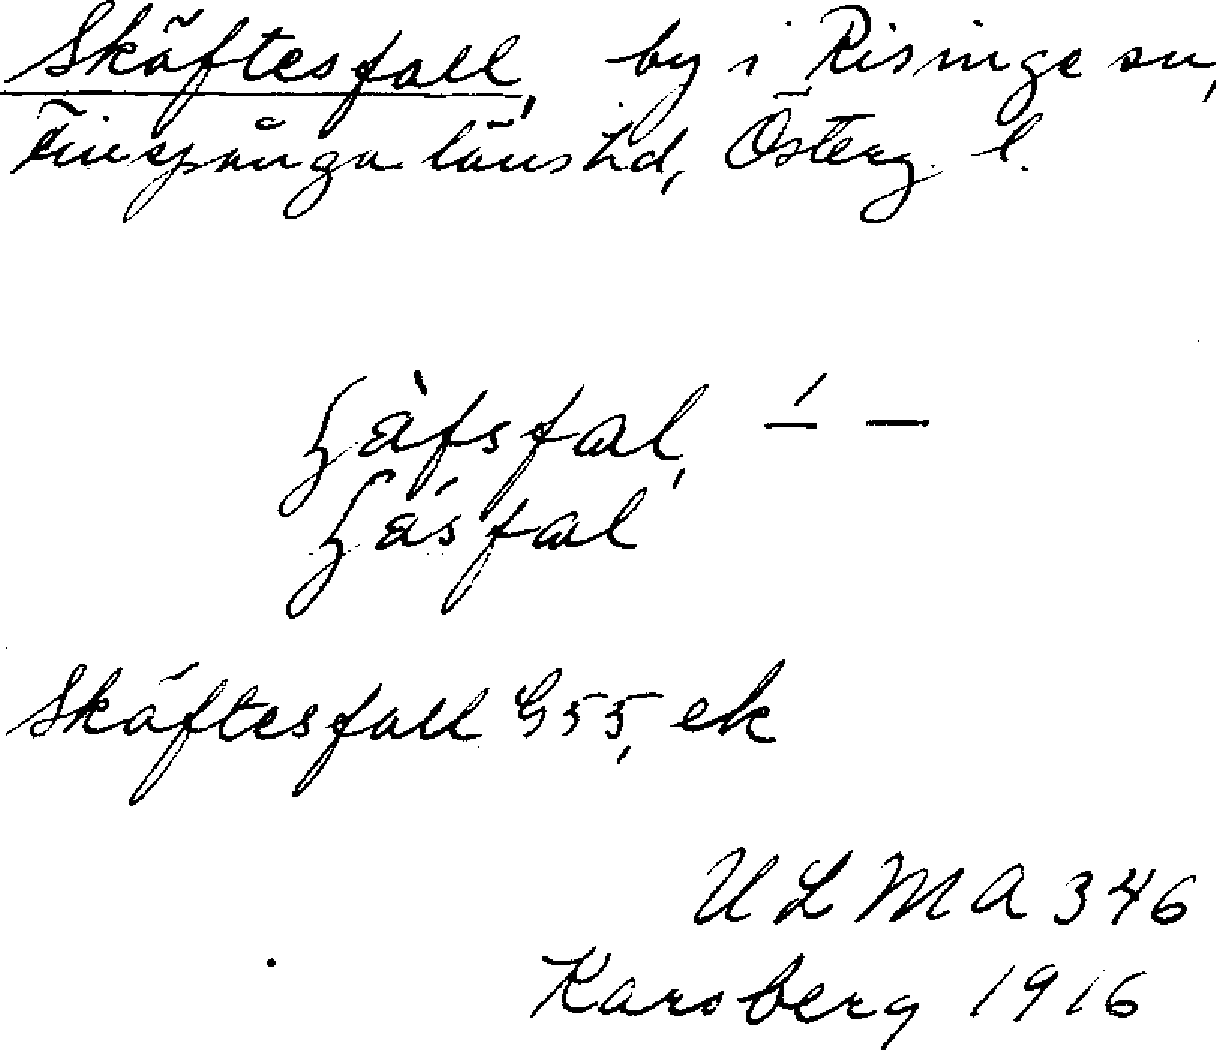 Skäftesfall, by i Risinge sn,
Finspånga läns hd, Österg. l.
ʃæ̀fsfal, –́ –
ʃæ̀sfal
Skäftesfall G55, ek
ULMA 346
Karsberg 1916